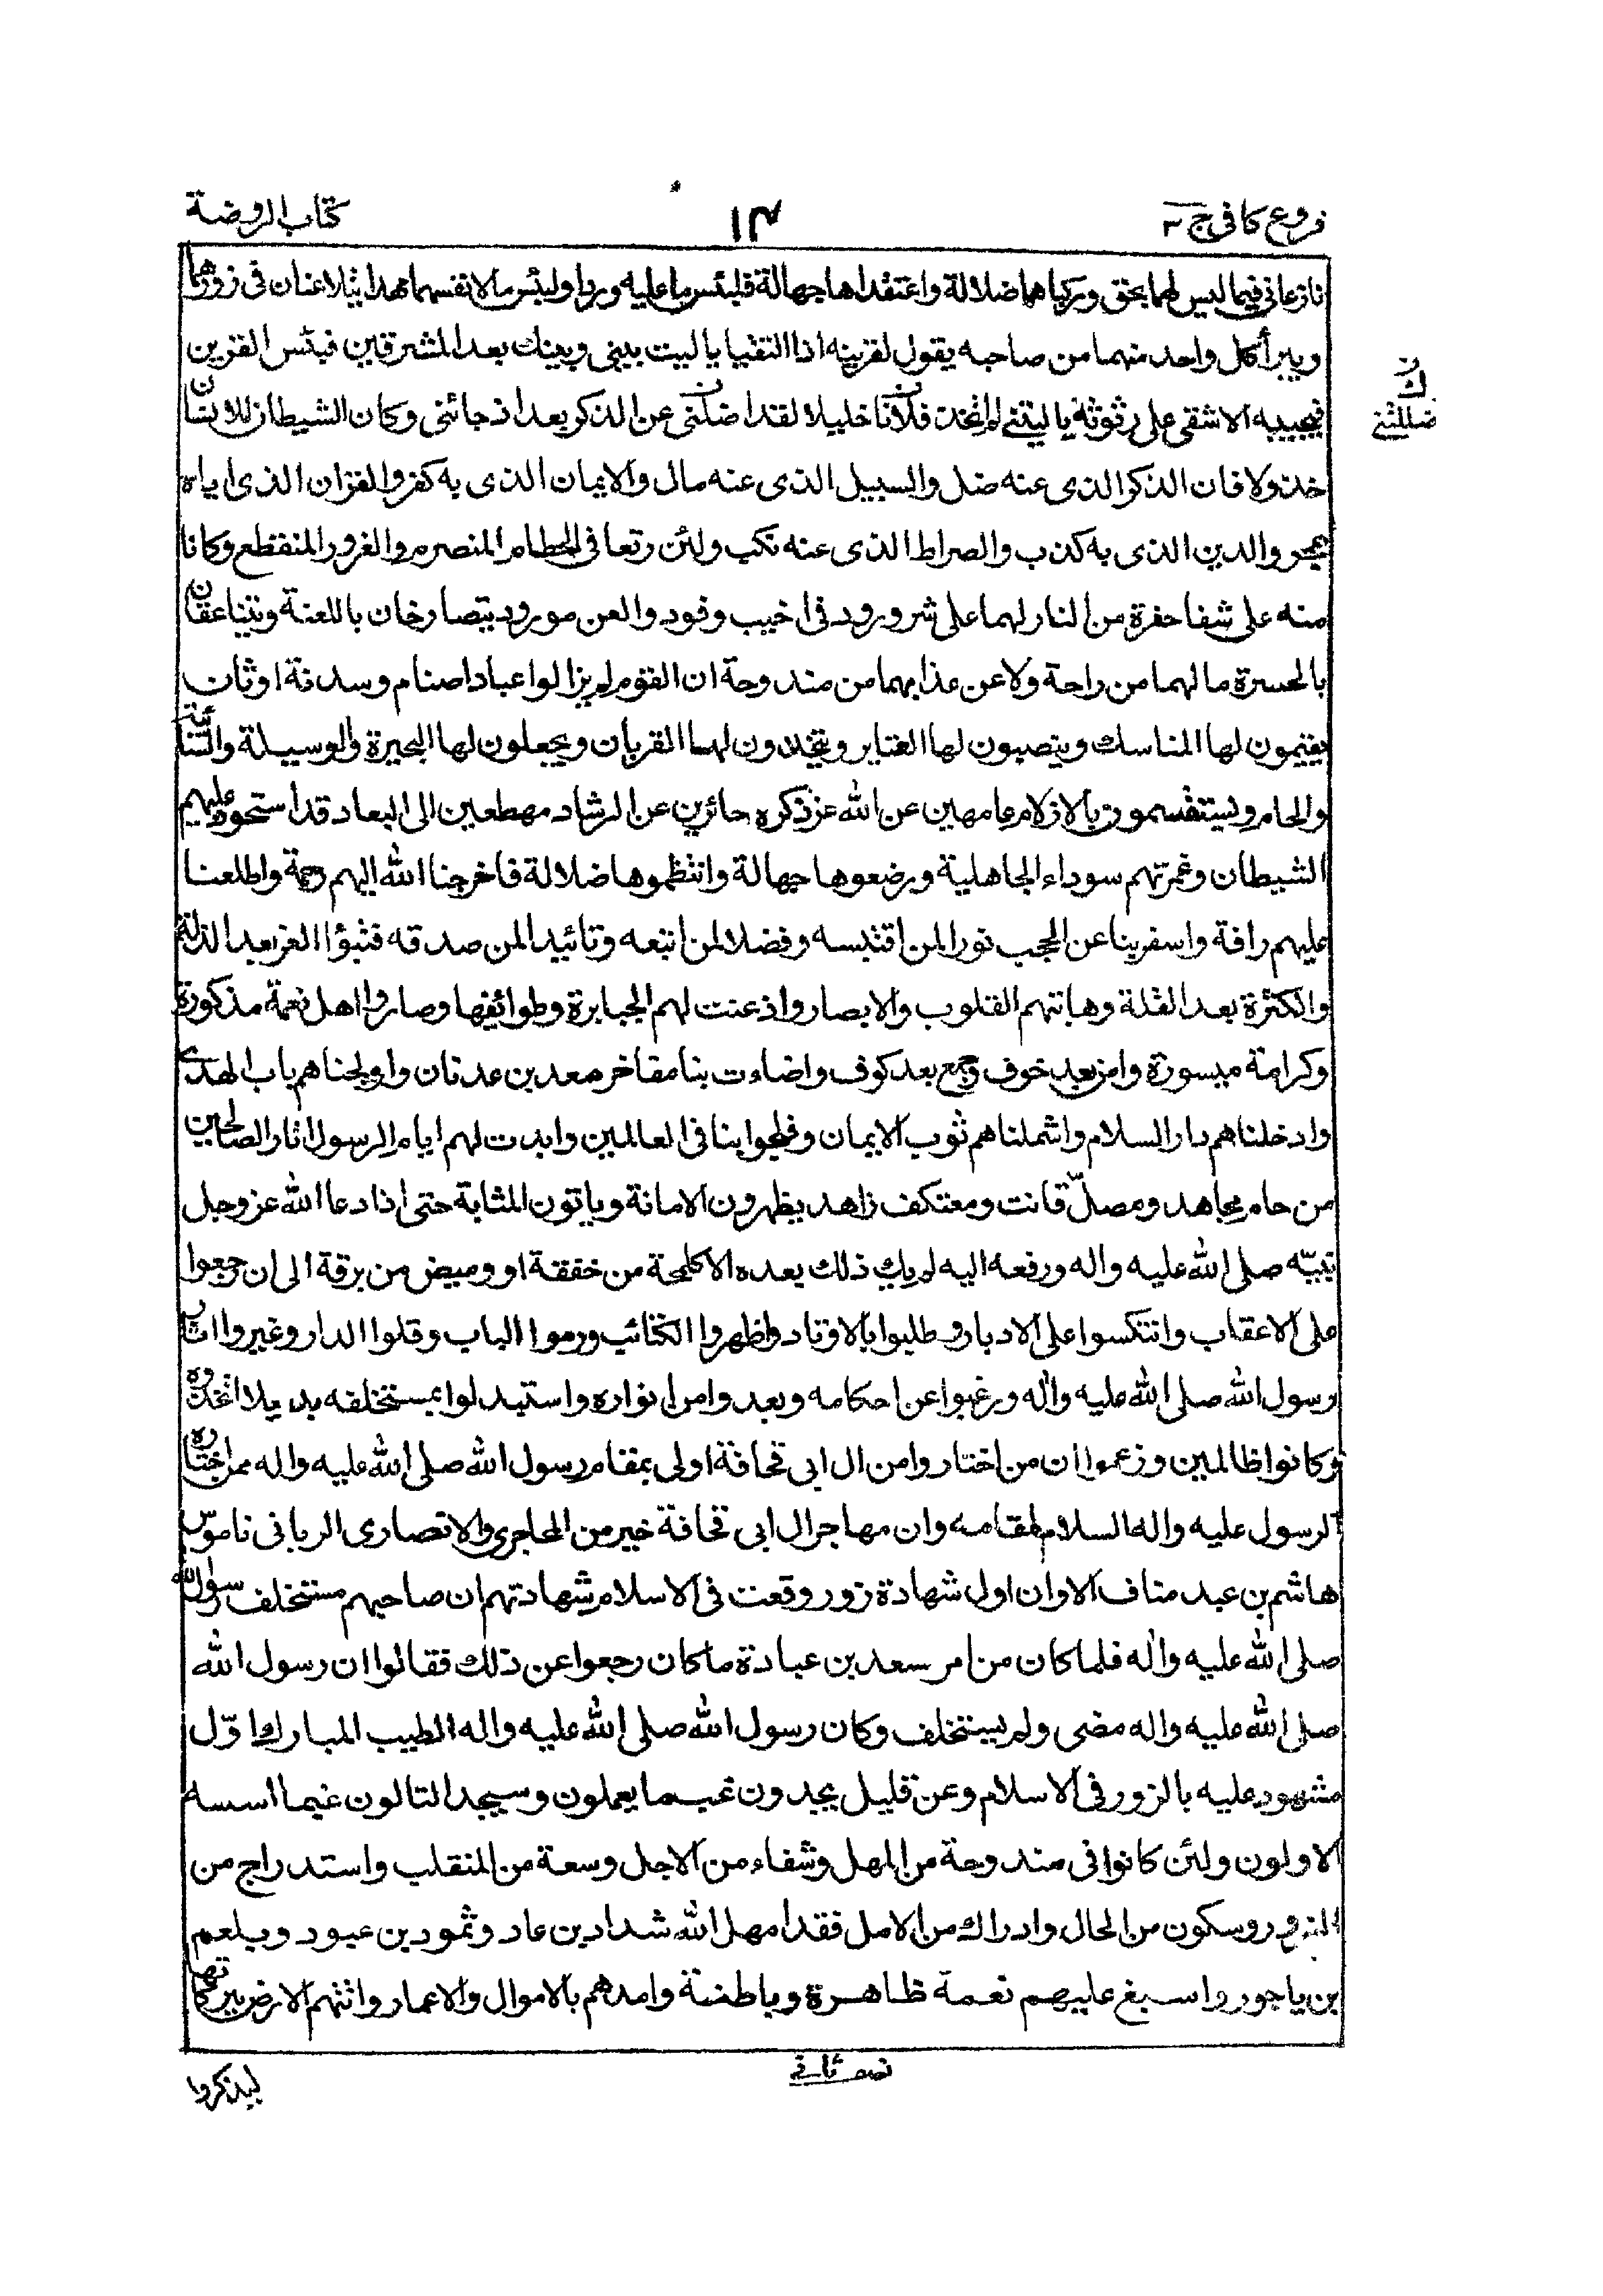 فروع کافی ج ۳
۱۴
کتاب الروضة
نازعانی فیما لیس لهما بحق ورکباهما ضلالة واعتقداها جهالة فلبئس ما علیه وردا ولبئس ما لانفسهما مهدا یتلاعنان فی دورهما
ویبرأ کل واحد منهما من صاحبه یقول لقرینه اذا التقیا یا لیت بینی وبینک بعد المشرقین فبئس القرین
فیجیبه الاشقی علی رثوثة یا لیتنی لم اتخذ فلانا خلیلا لقد اضلنی عن الذکر بعد اذ جائنی وکان الشیطان للانسان
ن ک
ضللتنی
خذولا فان الذکر الذی عنه ضل والسبیل الذی عنه مال والایمان الذی به کفر والقران الذی ایاه
هجر والدین الذی به کذب والصراط الذی عنه نکب ولئن رتعا فی الحطام المنصرم والغرور المنقطع وکانا
منه علی شفا حفرة من النار لهما علی شر ورود فی اخیب وفود والعن مورود یتصارخان باللعنة ویتناعقان
بالحسرة ما لهما من راحة ولا عن عذابهما من مندوحة ان القوم لم یزالوا عباد اصنام وسدنة اوثان
یقیمون لها المناسک وینصبون لها العتایر ویتخذون لها القربان ویجعلون لها البحیرة والوسیلة والسائبة
والحام ویستقسمون بالازلام عامهین عن الله عز ذکره حائرین عن الرشاد مهطعین الی البعاد قد استحوذ علیهم
الشیطان وغمرتهم سوداء الجاهلیة ورضعوها جهالة وانتظموها ضلالة فاخرجنا الله الیهم رحمة واطلعنا
علیهم رافة واسفر بنا عن الحجب نورا لمن اقتبسه وفضلا لمن اتبعه وتائیدا لمن صدقه فتبؤا العز بعد الذلة
والکثرة بعد القلة وهابتهم القلوب والابصار واذعنت لهم الجبابرة وطوائفها وصاروا اهل نعمة مذکورة
وکرامة میسورة وامن بعد خوف وجمع بعد کوف واضاءت بنا مفاخر معد بن عدنان واولجناهم باب الهدی
وادخلناهم دار السلام واشملناهم ثوب الایمان وفلجوا بنا فی العالمین وابدت لهم ایام الرسول اثار الصالحین
من حام مجاهد ومصلّ قانت ومعتکف زاهد یظهرون الامانة ویاتون المثابة حتی اذا دعا الله عز وجل
نبیّه صلی الله علیه واله ورفعه الیه لم یک ذلک بعده الا کلمحة من خفقة او ومیض من برقة الی ان رجعوا
علی الاعقاب وانتکسوا علی الادبار وطلبوا بالاوتاد واظهروا الکتائب ورموا الباب وفلوا الدار وغیروا اثار
رسول الله صلی الله علیه واله ورغبوا عن احکامه وبعدوا من انواره واستبدلوا بمستخلفه بدیلا اتخذوه
وکانوا ظالمین وزعموا ان من اختاروا من ال ابی قحافة اولی بمقام رسول الله صلی الله علیه واله ممن اختاره
الرسول علیه واله السلام لمقامه وان مهاجر ال ابی قحافة خیر من المهاجری والانصاری الربانی ناموس
هاشم بن عبد مناف الا وان اول شهادة زور وقعت فی الاسلام شهادتهم ان صاحبهم مستخلف رسول الله
صلی الله علیه واله فلما کان من امر سعد بن عبادة ما کان رجعوا عن ذلک فقالوا ان رسول الله
صلی الله علیه واله مضی ولم یستخلف وکان رسول الله صلی الله علیه واله الطیب المبارک اوّل
مشهود علیه بالزور فی الاسلام وعن قلیل یجدون غب ما یعملون وسیجد التالون غیما اسسه
الاولون ولئن کانوا فی مندوحة من المهل وشفاء من الاجل وسعة من المنقلب واستدراج من
الغرور وسکون من الحال وادراک من الامل فقد امهل الله شداد بن عاد وثمود بن عبود وبلعم
بن باجور واسبغ علیهم نعمة ظاهرة وباطنة وامدهم بالاموال والاعمار واتتهم الارض ببرکاتها
نصف ثانی
لیذکروا